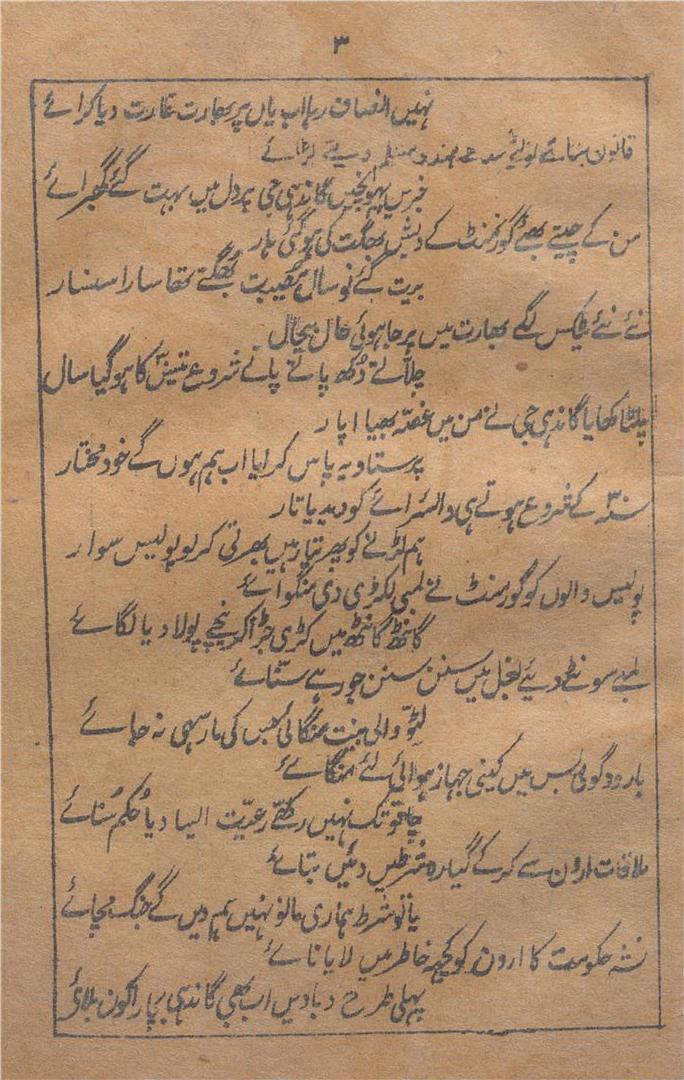 ۳
نہیں انصاف رہا اب یاں پر بھارت غارت دیا کرائے
قانون بنا کے لوٹے ہندو مسلم دیئے لڑائے
خبریں پہونچیں گاندہی جی پر دل میں بہت گئے گھبرائے
من کے چیتے بھئے گورنمنٹ کے دیش بھگت کی ہوگئی ہار
بریت گئے نو سال مصیبت بھگتے تھا سارا سنسار
نئے نئے ٹیکس لگے بھارت میں پرجا ہوئی حال بیحال
چلّاتے دُکھ پاتے پاتے شروع تیس کا ہوگیا سال
پلٹا کھایا گاندہی جی نے من میں غصّہ بھیا اپار
پرستاو یہ پاس کرایا اب ہم ہوں گے خود مختار
سنہ کے شروع ہوتے ہی وائسرائے کو دیدیا تار
ہم لڑنے کو پھر تیار ہیں بھرتی کر لو پولیس سوار
پولیس والوں کو گورمنٹ نے لمبی لکڑی دی منگوائے
گانٹھ گانٹھ میں کڑی جڑا کر نیچے پولا دیا لگائے
لمبے سونٹے دیئے بغل میں سنن سنن جو رہے سنّائے
لٹّو والی بینت منگائی جس کی مار سہی نہ جائے
بارود گولی بس میں کینی جہاز ہوائی لئے منگائے
چاقو تک نہیں رکھے رعیّت ایسا دیا حُکم سُنائے
ملاقات ارون سے کر کے گیارہ شرطیں دئیں بتائے
یا تو شرط ہماری مانو نہیں ہم دیں گے جنگ مچائے
نشہ حکومت کا ارون کو کچھ خاطر میں لایا نائے
پہلی طرح دبا دیں اب بھی گاندہی بیچارا کون بلائے